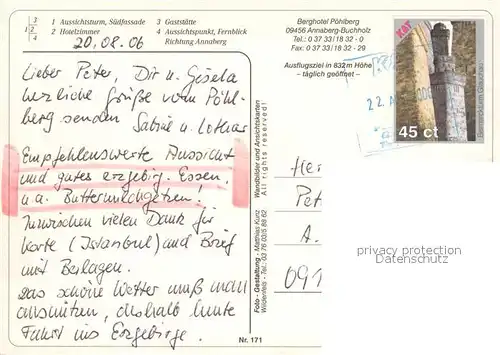 3
1
2 4
1 Aussichtsturm, Südfassade
2 Hotelzimmer
3 Gaststätte
4 Aussichtspunkt, Fernblick
Richtung Annaberg
20.08.06
Lieber Peter, Dir u. Gisela
herzliche Grüße vom Pöhl-
berg senden Sabine u. Lothar
Empfehlenswerte Aussicht
und gutes erzgebirg. Essen,
u.a. Buttermilchgetzen!
Inzwischen vielen Dank für
Karte (Istanbul) und Brief
mit Beilagen.
Das schöne Wetter muß man
ausnützen, deshalb heute
Fahrt ins Erzgebirge.
Nr. 171
Foto - Gestaltung - Matthias Kunz
Wildenfels - Tel.: 03 76 03/5 88 62
Wandbilder und Ansichtskarten
All rights reserved!
Berghotel Pöhlberg
09456 Annaberg-Buchholz
Tel.: 0 37 33/18 32 - 0
Fax: 0 37 33/18 32 - 29
Ausflugsziel in 832 m Höhe
- täglich geöffnet -
45 ct
Bismarckturm Glauchau
22.
Her
Pet
A.
091
privacy protection
Datenschutz